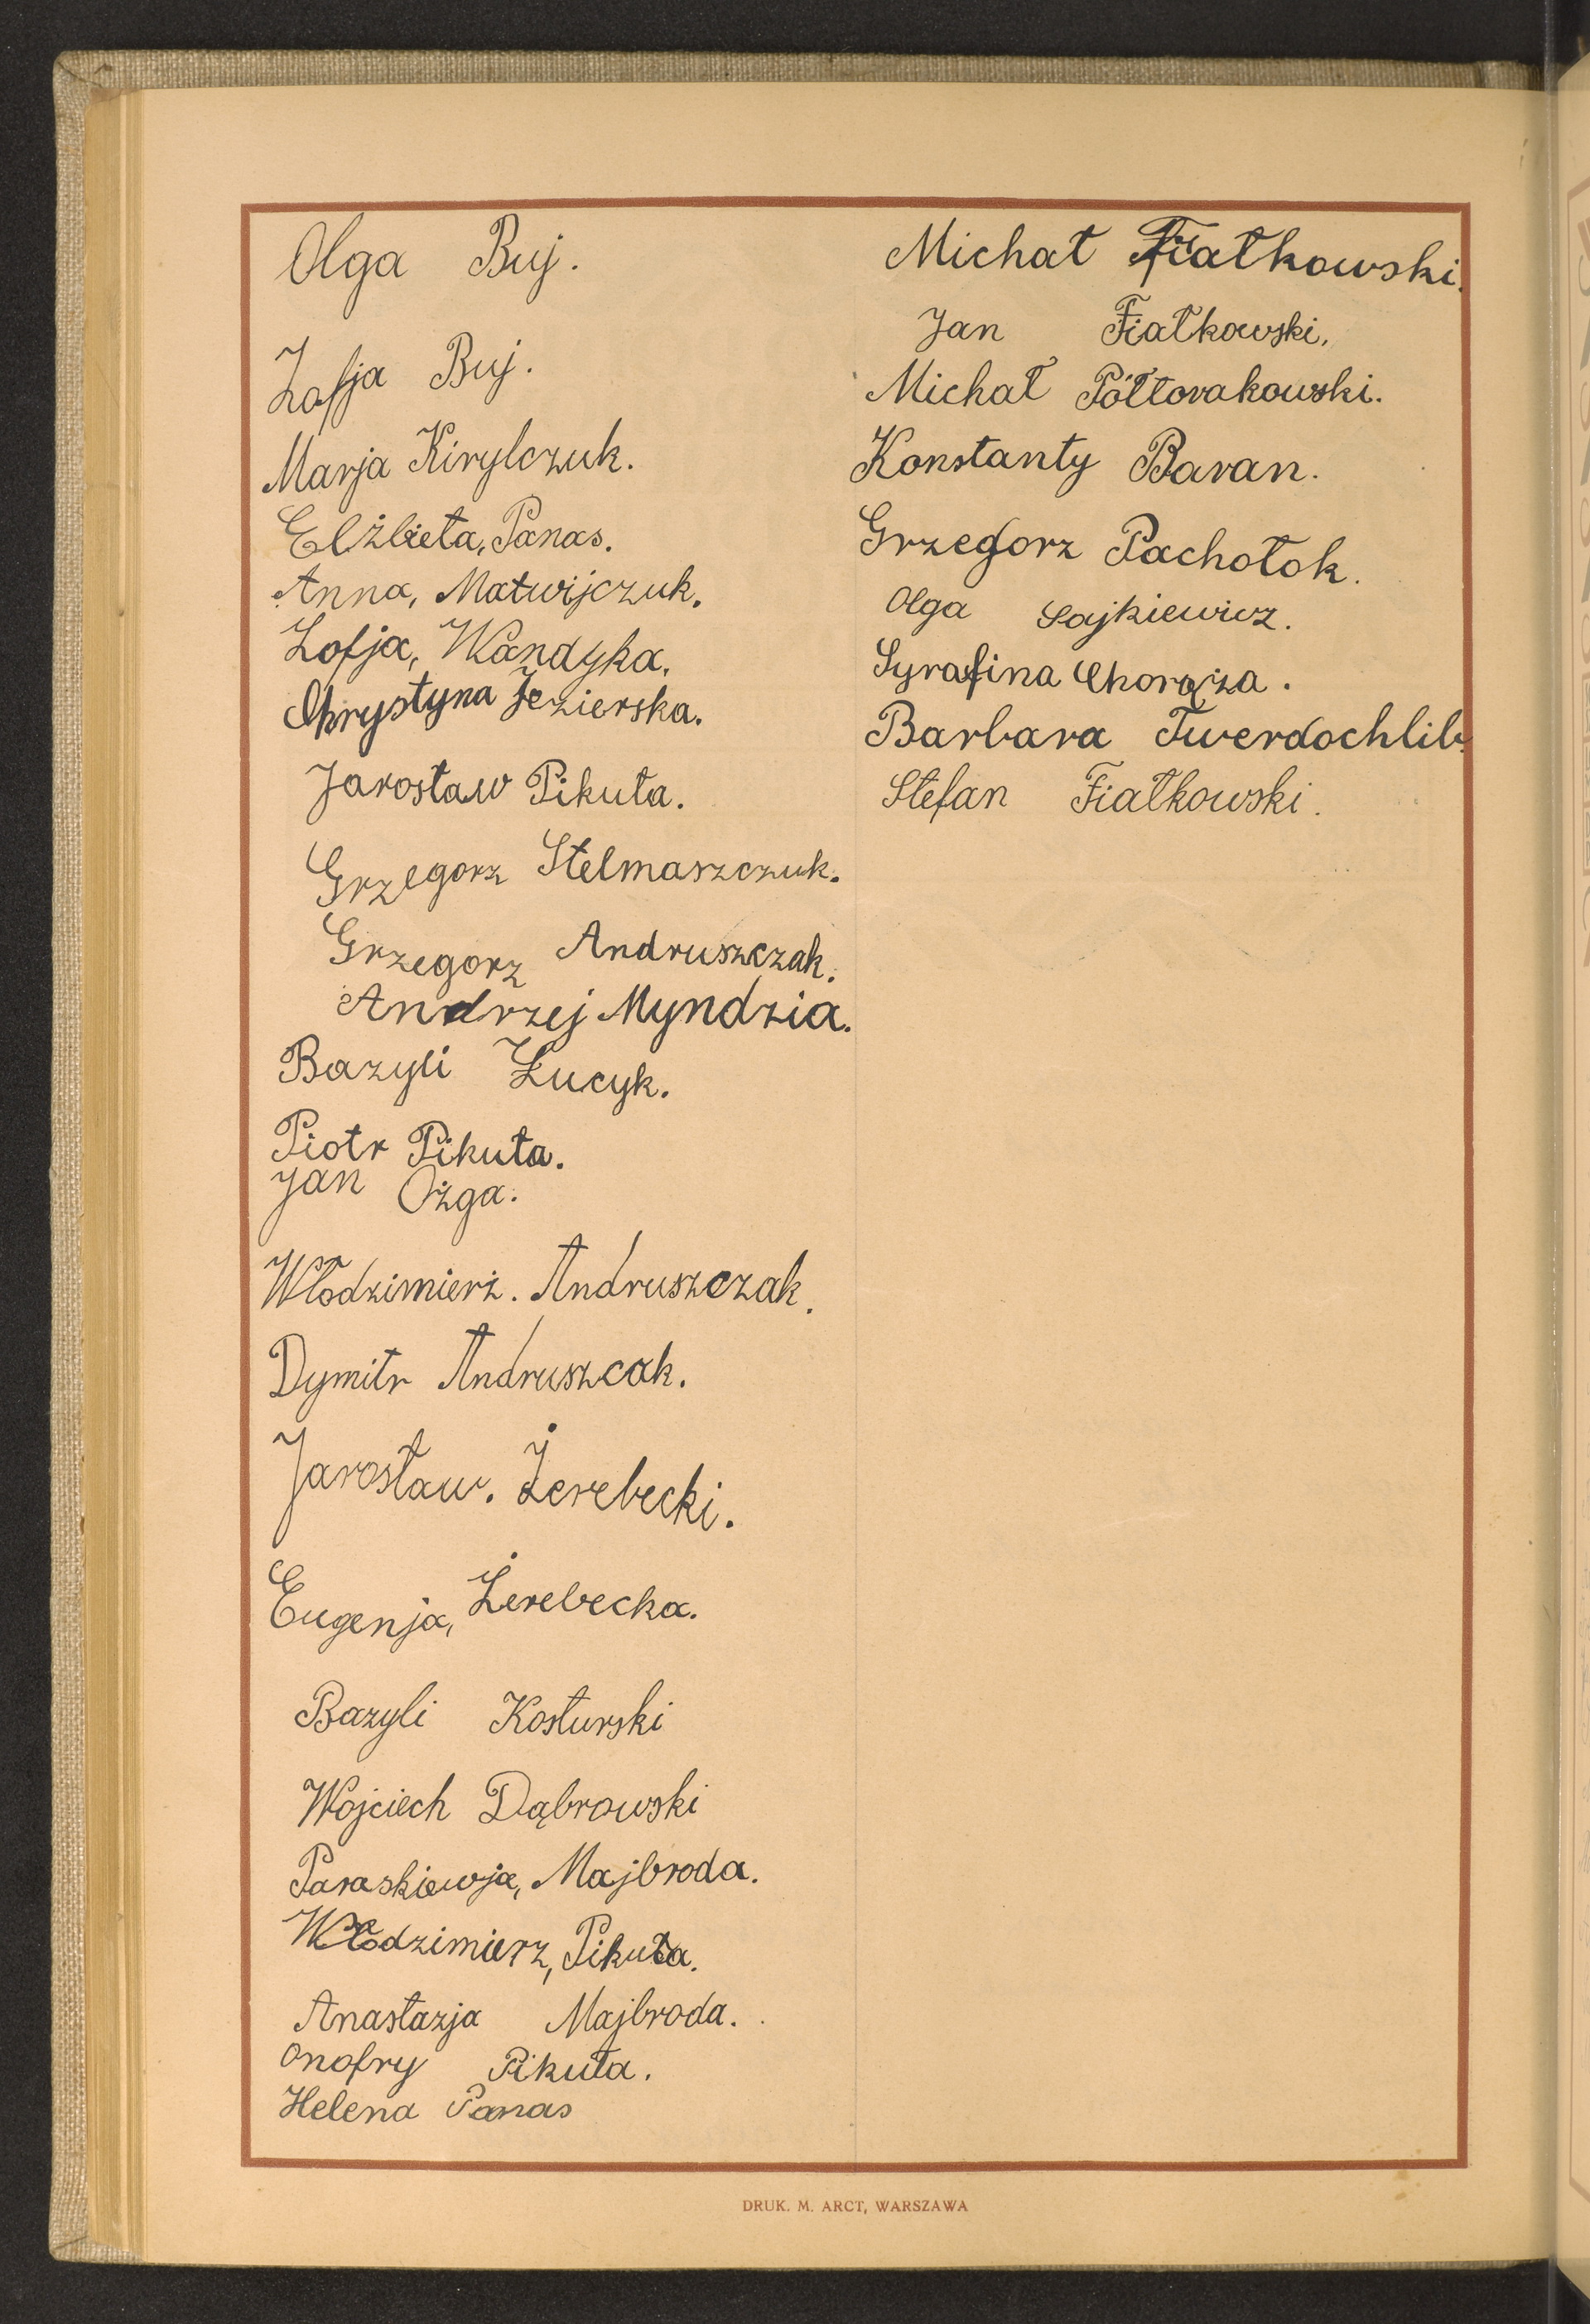 Olga Buj.
Zofja Buj.
Marja Kirylczuk.
Elżbieta, Panas.
Anna, Matwijczuk.
Zofja, Wandyka.
Chrystyna Jezierska.
Jarosław Pikuła.
Grzegorz Stelmaszczuk.
Grzegorz Andruszczak.
Andrzej Myndzia.
Bazyli Łucyk.
Piotr Pikuła.
Jan Ożga.
Włodzimierz. Andruszczak.
Dymitr Andruszcak.
Jarosław. Żerebecki.
Eugenja, Żerebecka.
Bazyli Kosturski
Wojciech Dąbrowski
Paraskiewja, Majbroda.
Włodzimierz, Pikuła.
Anastazja Majbroda.
Onofry Pikuła.
Helena Panas
Michał Fiałkowski.
Jan Fiałkowski.
Michał Półtorakowski.
Konstanty Baran.
Grzegorz Pachołok.
Olga Sajkiewicz.
Syrafina Chorąża.
Barbara Twerdochlib.
Stefan Fiałkowski.
DRUK. M. ARCT, WARSZAWA